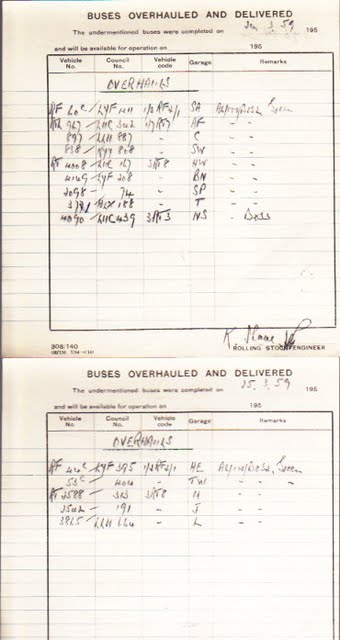 BUSES OVERHAULED AND DELIVERED
The undermentioned buses were completed on 3. 59 195
and will be available for operation on 195
Vehicle No. Council No. Vehicle code Garage Remarks
OVERHAULS
RF 60c LYF 411 1/2RF2/1 SA Green
967 342 AF - -
897 LLH 887 - C - -
838 KYY 808 - SW - -
RT 4008 LUC 167 3RT8 HW - -
4149 LYF 208 - BN - -
2098 - 74 - SP - -
188 - T - -
4090 LUC 439 3RT3 NS - Doss
308/140
ROLLING STOCK ENGINEER
BUSES OVERHAULED AND DELIVERED
The undermentioned buses were completed on 25. 3. 59 195
and will be available for operation on 195
Vehicle No. Council No. Vehicle code Garage Remarks
OVERHAULS
RF LYF 395 1/2RF2/1 HE Green
53c - 404 - TW - -
RT 2588 - 313 3RT8 H - -
2542 - 191 - J - -
3865 LLH 664 - L - -